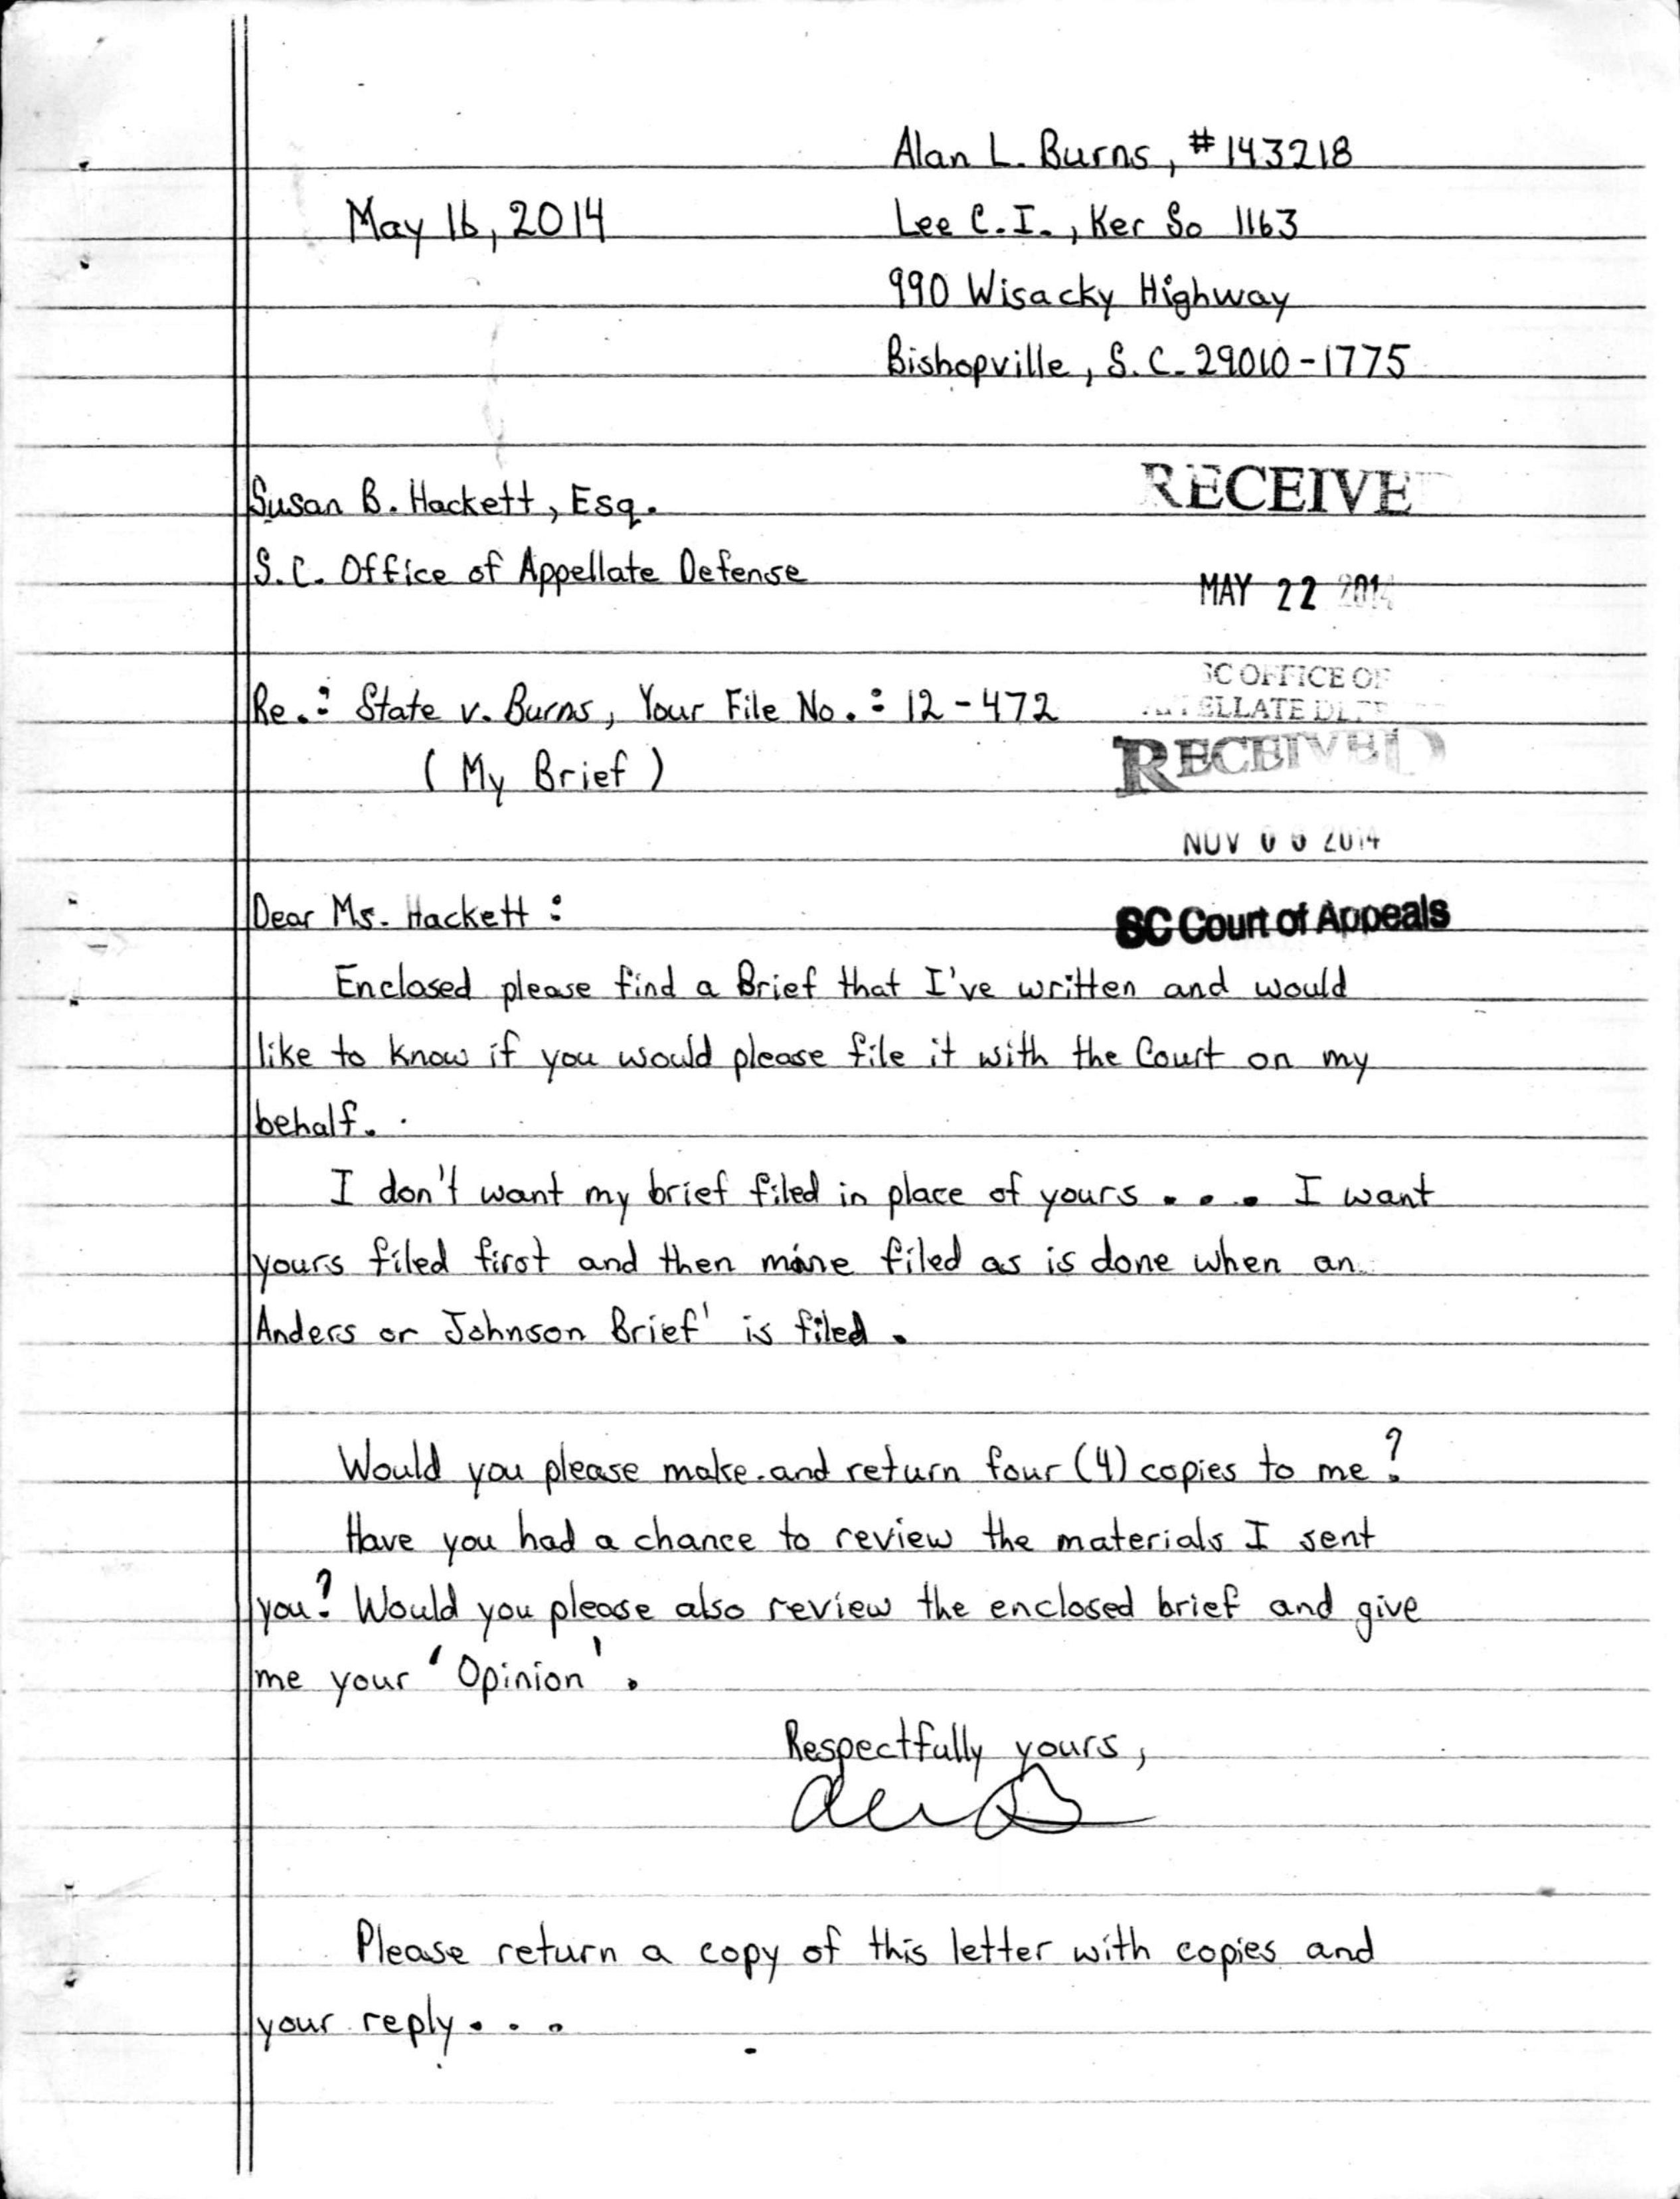 Alan L. Burns, #143218
May 16, 2014
Lee C.I., Ker So 1163
990 Wisacky Highway
Bishopville, S.C. 29010-1775
RECEIVE
Susan B. Hackett, Esq.
S.C. Office of Appellate Defense
MAY 22 2014
SC OFFICE OF
Re.: State v. Burns, Your File No.: 12-472
ELLATE DEF
(My Brief)
RECEIVED
NOV 2014
Dear Ms. Hackett:
SC Court of Appeals
Enclosed please find a Brief that I've written and would
like to know if you would please file it with the Court on my
behalf.
I don't want my brief filed in place of yours... I want
yours filed first and then mine filed as is done when an
Anders or Johnson Brief' is filed.
Would you please make and return four (4) copies to me?
Have you had a chance to review the materials I sent
you? Would you please also review the enclosed brief and give
me your 'Opinion'.
Respectfully yours,
Please return a copy of this letter with copies and
your reply...